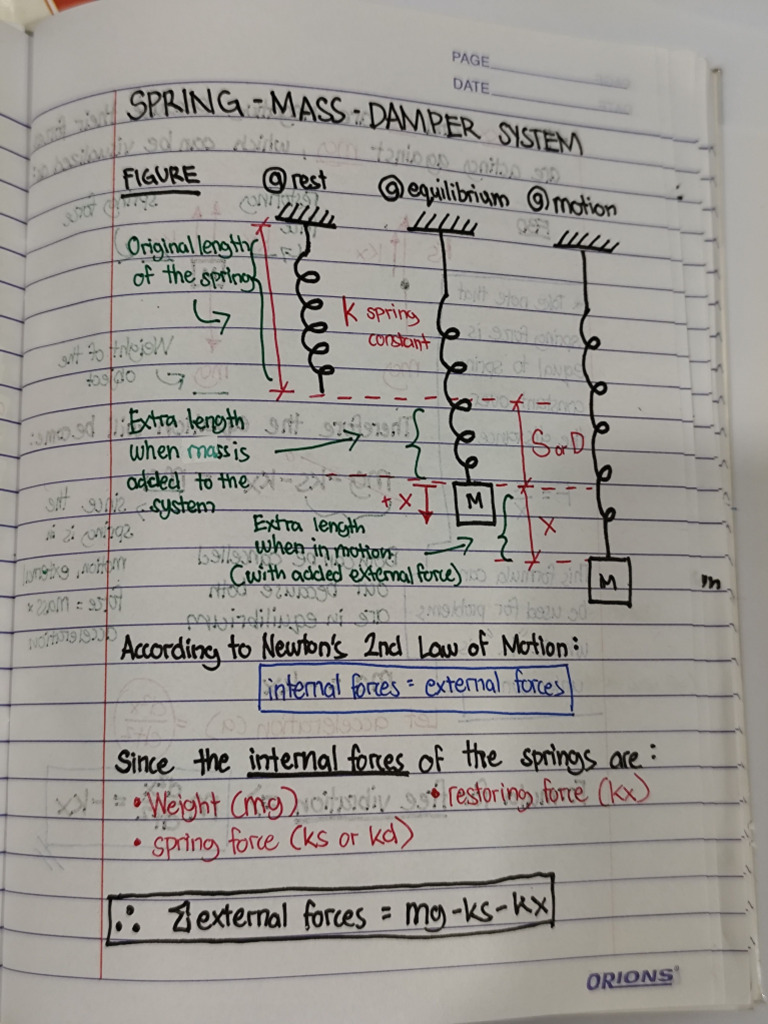 PAGE
DATE
SPRING-MASS-DAMPER SYSTEM
FIGURE
@ rest
@ equilibrium
@ motion
Original length
of the spring
K spring
constant
Extra length
when mass is
added to the
system
S or D
+ X
M
Extra length
when in motion
(with added external force)
X
M
m
According to Newton's 2nd Law of Motion:
internal forces = external forces
Since the internal forces of the springs are:
• Weight (mg)
• restoring force (kx)
• spring force (ks or kd)
∴ Σ external forces = mg-ks-kx
ORIONS